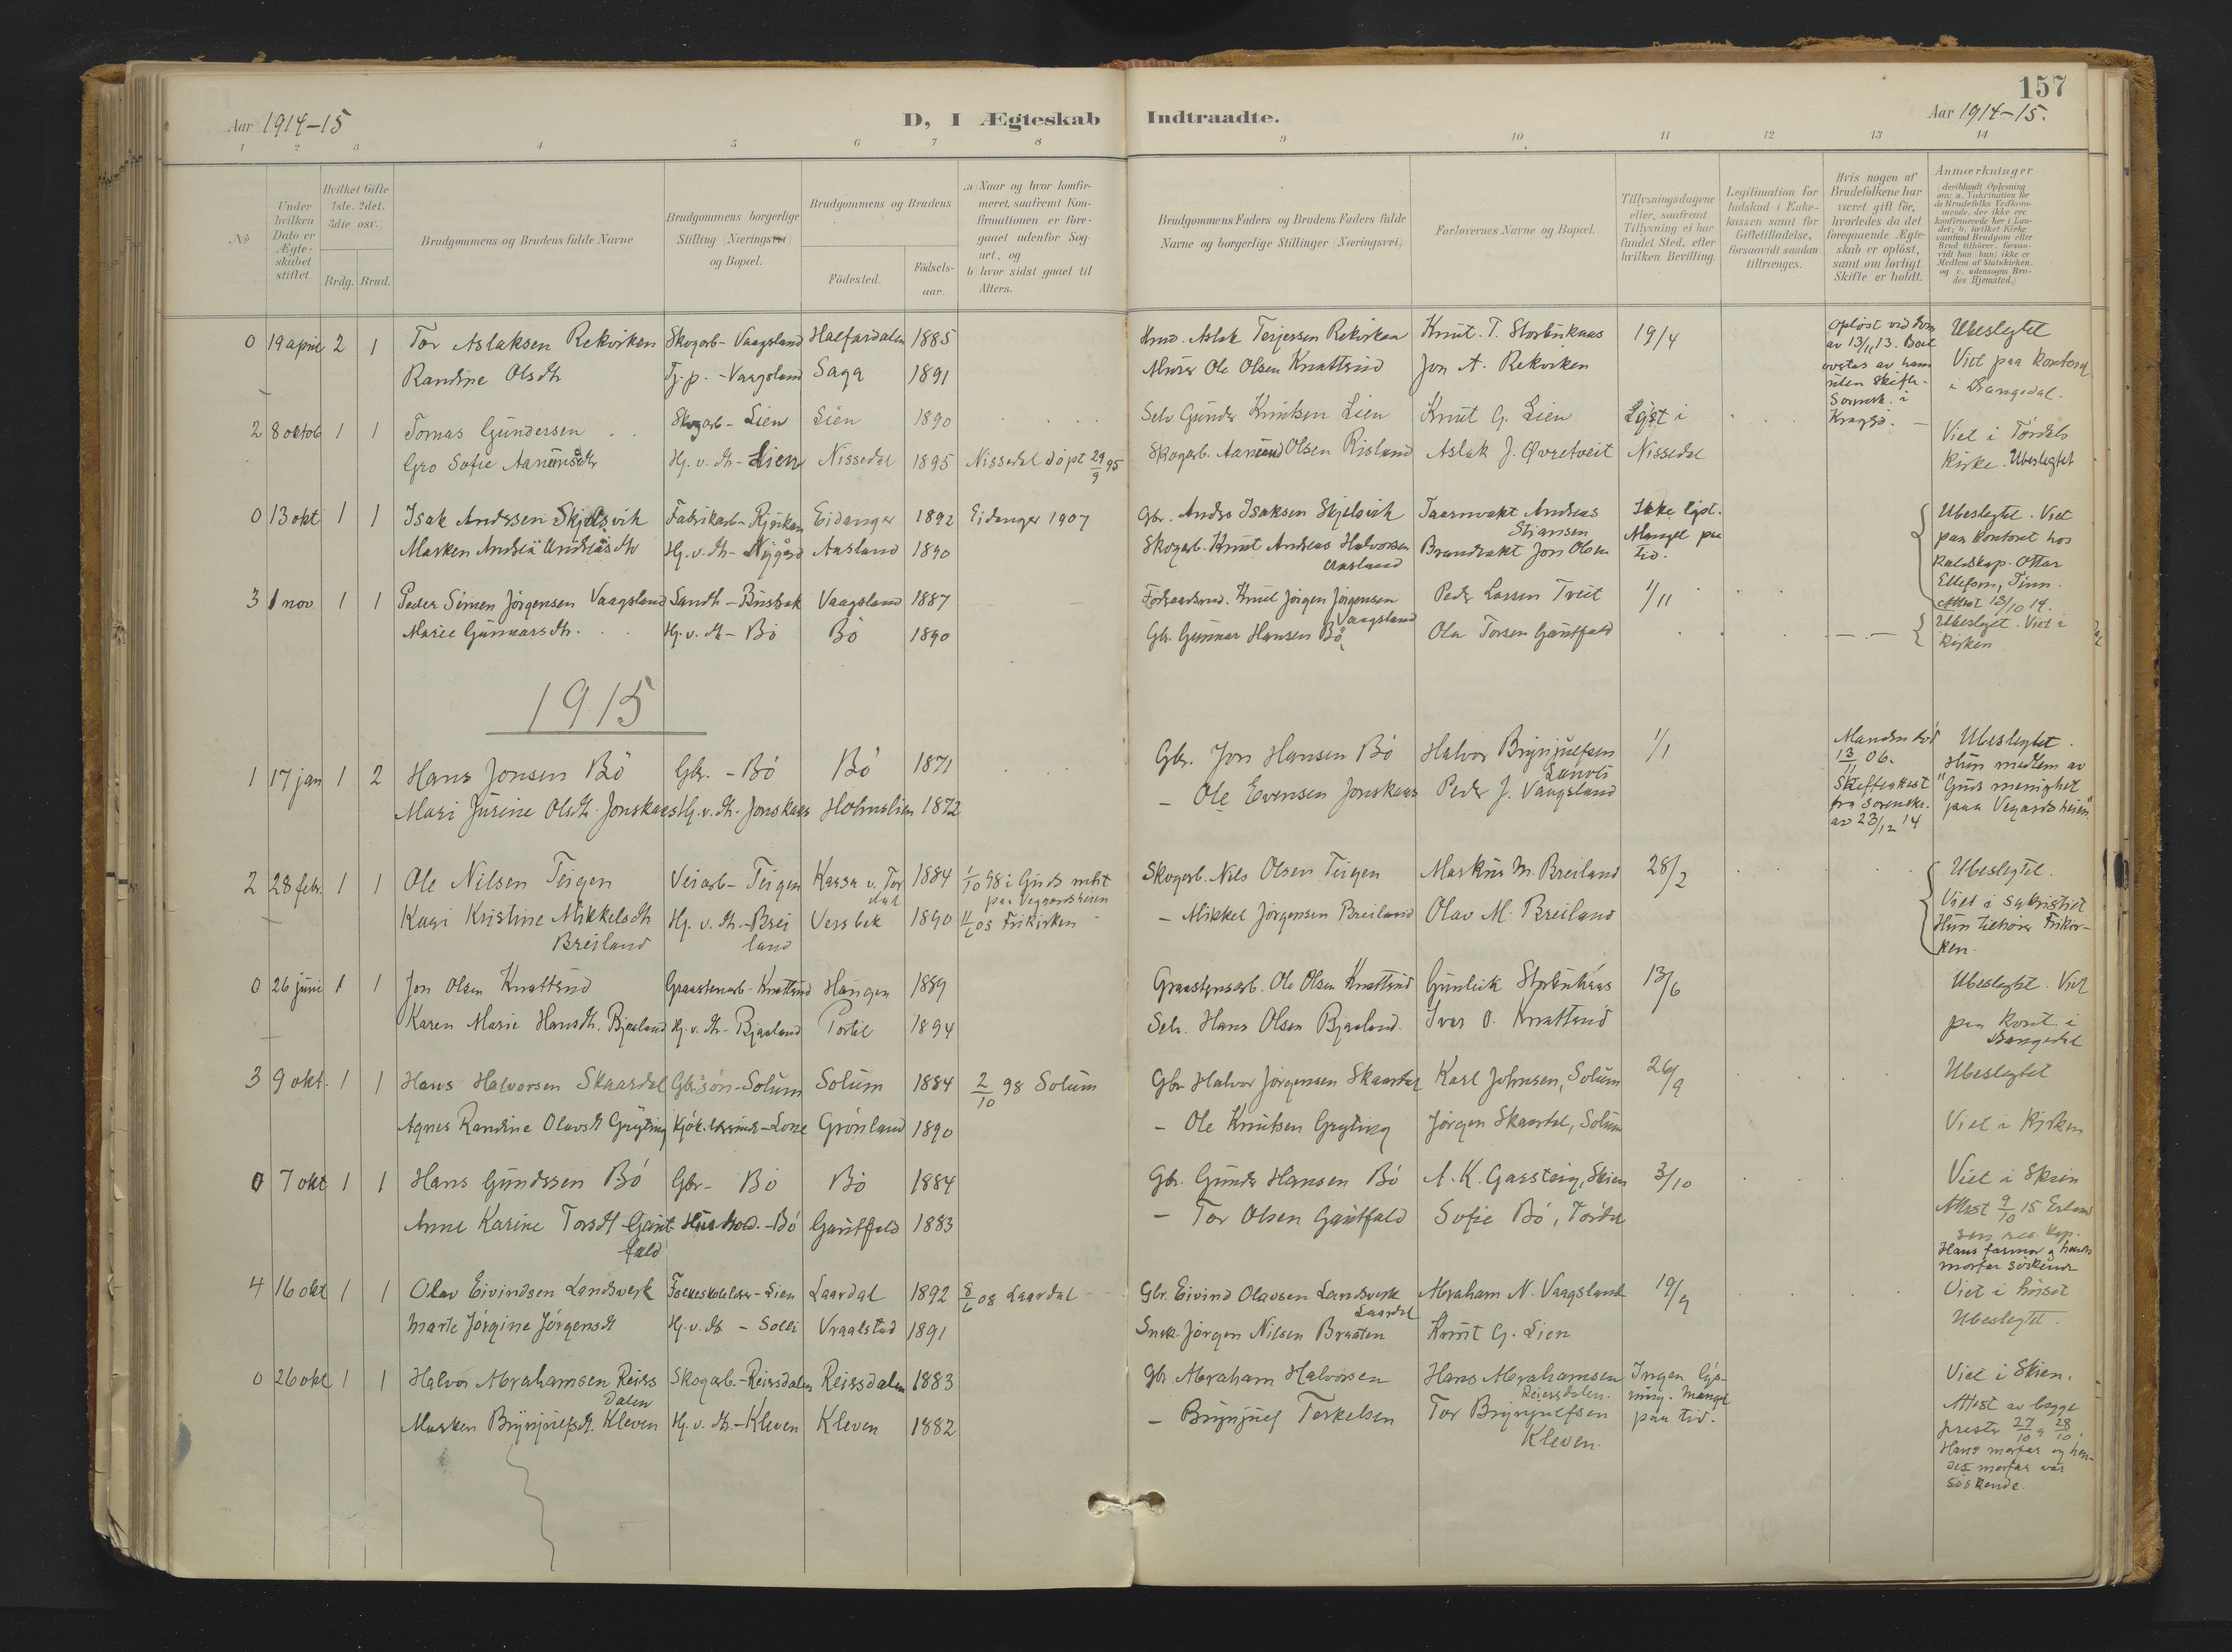 157
Aar 1914-15
D, I Ægteskab Indtraadte.
Aar 1914-15.
1 2 3 4 5 6 7 8 9 10 11 12 13 14
№
Under hvilken Dato er Ægte- skabet stiftet.
Hvilket Gifte 1ste. 2det. 3die osv.)
Brdg. Brud.
Brudgommens og Brudens fulde Navne
Brudgommens borgerlige Stilling (Næringsvei) og Bopæl.
Brudgommens og Brudens
Födested.
Födsels- aar.
a) Naar og hvor konfir- meret, saafremt Kon- firmationen er fore- gaaet udenfor Sog- net, og
b) hvor sidst gaaet til Alters.
Brudgommens Faders og Brudens Faders fulde Navne og borgerlige Stillinger (Næringsvei)
Forlovernes Navne og Bopæl.
Tillysningsdagene eller, saafremt Tillysning ei har fundet Sted, efter hvilken Bevilling.
Legitimation for Indskud i Enke- kassen samt for Giftetilladelse, forsaavidt saadan tiltrænges.
Hvis nogen af Brudefolkene har været gift för, hvorledes da det foregaaende Ægte- skab er oplöst, samt om lovligt Skifte er holdt.
Anmærkninger
(deriblandt Oplysning om: a. Vakcination for de Brudefolks Vedkom- mende, der ikke ere konfirmerede her i Lan- det; b. hvilket Kirke- samfund Brudgom eller Brud tilhörer, forsaa- vidt han (hun) ikke er Medlem af Statskirken. og c. udensogns Bru- des Hjemsted.)
0 19 april 2 1 Tor Aslaksen Rekvirken Skogarb - Vaagsland Halfardalen 1885
Aslak Terjersen Rekvirken Knut T. Storbukaas 19/4 Opløst ved dom av 13/11 13. Boet overtas av ham uten skifte. Sorensk. i Kragø. Ubeslegtet
Randine Olsdtr Tj.p. - Vaagsland Saga 1891
Murer Ole Olsen Knattrud Jon A. Rekvirken Viet paa kontoret i Drangedal.
2 8 oktob 1 1 Tomas Gundersen Skogarb - Lien Lien 1890
Selv. Gunder Knutsen Lien Knut G. Lien Lyst i Nissedal
Gro Sofie Aanunsdtr Hj. v. dtr - Lien Nissedal 1895 Nissedal døpt 29/9 95
Skogarb. Aanund Olsen Risland Aslak J. Øvretveit Viet i Tørdals kirke. Ubeslegtet
0 13 okt 1 1 Isak Andersen Skjelsvik Fabrikarb - Rjukan Eidanger 1892 Eidanger 1907
Gbr. Anders Isaksen Skjelsvik Taarnvakt Andreas Stiansen Ikke lyst. Mangel paa tid. Ubeslegtet. Viet paa kontoret hos Ottar Ellefsen, Tinn. Attest 13/10 14.
Marken Andrea Andreasdtr Hj. v. dtr - Nygård Aasland 1890
Skogarb. Knut Andreas Halvorsen Aasland Brandvakt Jon Olsen
3 1 nov. 1 1 Peder Simen Jørgensen Vaagsland Landh - Busbak Vaagsland 1887
Knut Jørgen Jørgensen Vaagsland Peder Larsen Tveit 1/11 Ubeslegtet. Viet i kirken
Marie Gunnarsdtr. Hj. v. dtr - Bø Bø 1890
Gbr. Gunnar Hansen Bø Ole Torsen Gautfald
1915
1 17 jan 1 2 Hans Jonsen Bø Gbr. - Bø Bø 1871
Gbr. Jon Hansen Bø Halvor Brynjulfsen 1/1 Manden død 13/11 06. Skifteattest fra sorenskr. av 23/12 14 Ubeslegtet. Hun medlem av "Guds menighet paa Vegardsheien".
Mari Jurine Olsdtr. Jonskaas Hj. v. dtr. Jonskaas Holmslien 1872
- Ole Evensen Jonskaas Peder J. Vaagsland
2 28 febr. 1 1 Ole Nilsen Teigen Veiarb - Teigen Kaasa v. Tordal 1884 1/10 98 i Guds mht paa Vegaardsheien
Skogarb. Nils Olsen Teigen Markus M. Breiland 28/2 Ubeslegtet. Viet i sakristiet Hun tilhører Frikirken.
Kari Kristine Mikkelsdtr Breiland Hj. v. dtr. - Breiland Versbek 1890 11/6 05 Frikirken
- Mikkel Jørgensen Breiland Olav M. Breiland
0 26 juni 1 1 Jon Olsen Knattrud Graastenarb - Knattrud Haugen 1889
Graastensarb. Ole Olsen Knattrud Gunleik Storbukaas 13/6 Ubeslegtet. Viet paa kont. i Drangedal
Karen Marie Hansdtr. Bjaaland Hj. v. dtr. - Bjaaland Portil 1894
Selv. Hans Olsen Bjaaland. Ivar O. Knattrud
3 9 okt. 1 1 Hans Halvorsen Skaardal Gbr.søn - Solum Solum 1884 2/10 98 Solum
Gbr. Halvor Jørgensen Skaardal Karl Johnsen, Solum 26/9 Ubeslegtet
Agnes Randine Olavsdtr Gryting Grønland 1890
- Ole Knutsen Gryting Jørgen Skaardal, Solum Viet i Kirken
0 7 okt 1 1 Hans Gundersen Bø Gbr - Bø Bø 1884
Gbr. Gunder Hansen Bø A. K. Garsteig, Skien 3/10 Viet i Skien Attest 9/10 15 Erlandsen res. kap. Hans farmor og hendes morfar søskende
Anne Karine Torsdtr Gautfald Hushold. - Bø Gautfald 1883
- Tor Olsen Gautfald Sofie Bø, Tørdal
4 16 okt 1 1 Olav Eivindsen Landsverk Folkeskolelærer - Lien Laardal 1892 8/6 08 Laardal
Gbr. Eivind Olavsen Landsverk Laardal Abraham N. Vaagsland 19/9 Viet i huset
Marte Jørgine Jørgensdtr Hj. v. dtr - Solli Vraalstad 1891
Snek. Jørgen Nilsen Braaten Knut G. Lien Ubeslegtet.
0 26 okt 1 1 Halvor Abrahamsen Reirsdalen Skogarb. - Reirsdalen Reirsdalen 1883
Gbr. Abraham Halvorsen Hans Abrahamsen Reiersdalen. Ingen lysning. Mangel paa tid. Viet i Skien. Attest av begge prester 27/10 og 28/10. Hans morfar og hendes morfar var søskende.
Marken Brynjulfsdtr. Kleven Hj. v. dtr. - Kleven Kleven 1882
- Brynjulf Terkelsen Tor Brynjulfsen Kleven.